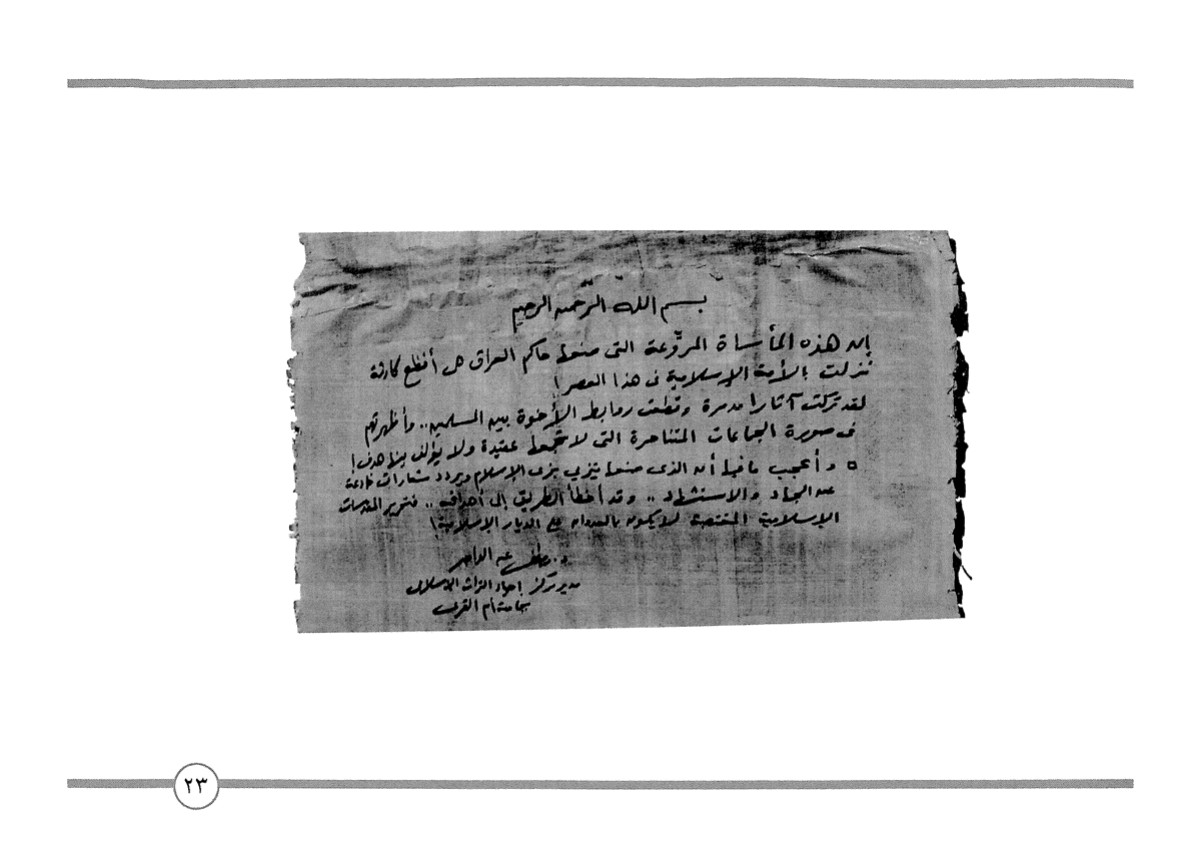 بسم الله الرحمن الرحيم
إن هذه المأساة المروّعة التى صنعها حاكم العراق هى أفظع كارثة
نزلت بالأمة الإسلامية فى هذا العصر!
لقد تركت آثارا مدمرة وقطعت روابط الأخوة بين المسلمين.. وأظهرتهم
فى صورة الجماعات المتناحرة التى لا تجمعها عقيدة ولا يؤلف بينها هدف!
وأعجب ما فيها أن الذى صنعها تزيي بزى الإسلام ويردد شعارات خادعة
عن الجهاد والاستشهاد.. وقد أخطأ الطريق إلى أهدافه.. فتحرير المقدسات
الإسلامية المغتصبة لا يكون بالعدوان على الديار الإسلامية!
د. مصطفى عبد الواحد
مدير مركز إحياء التراث الإسلامى
بجامعة أم القرى
٢٣